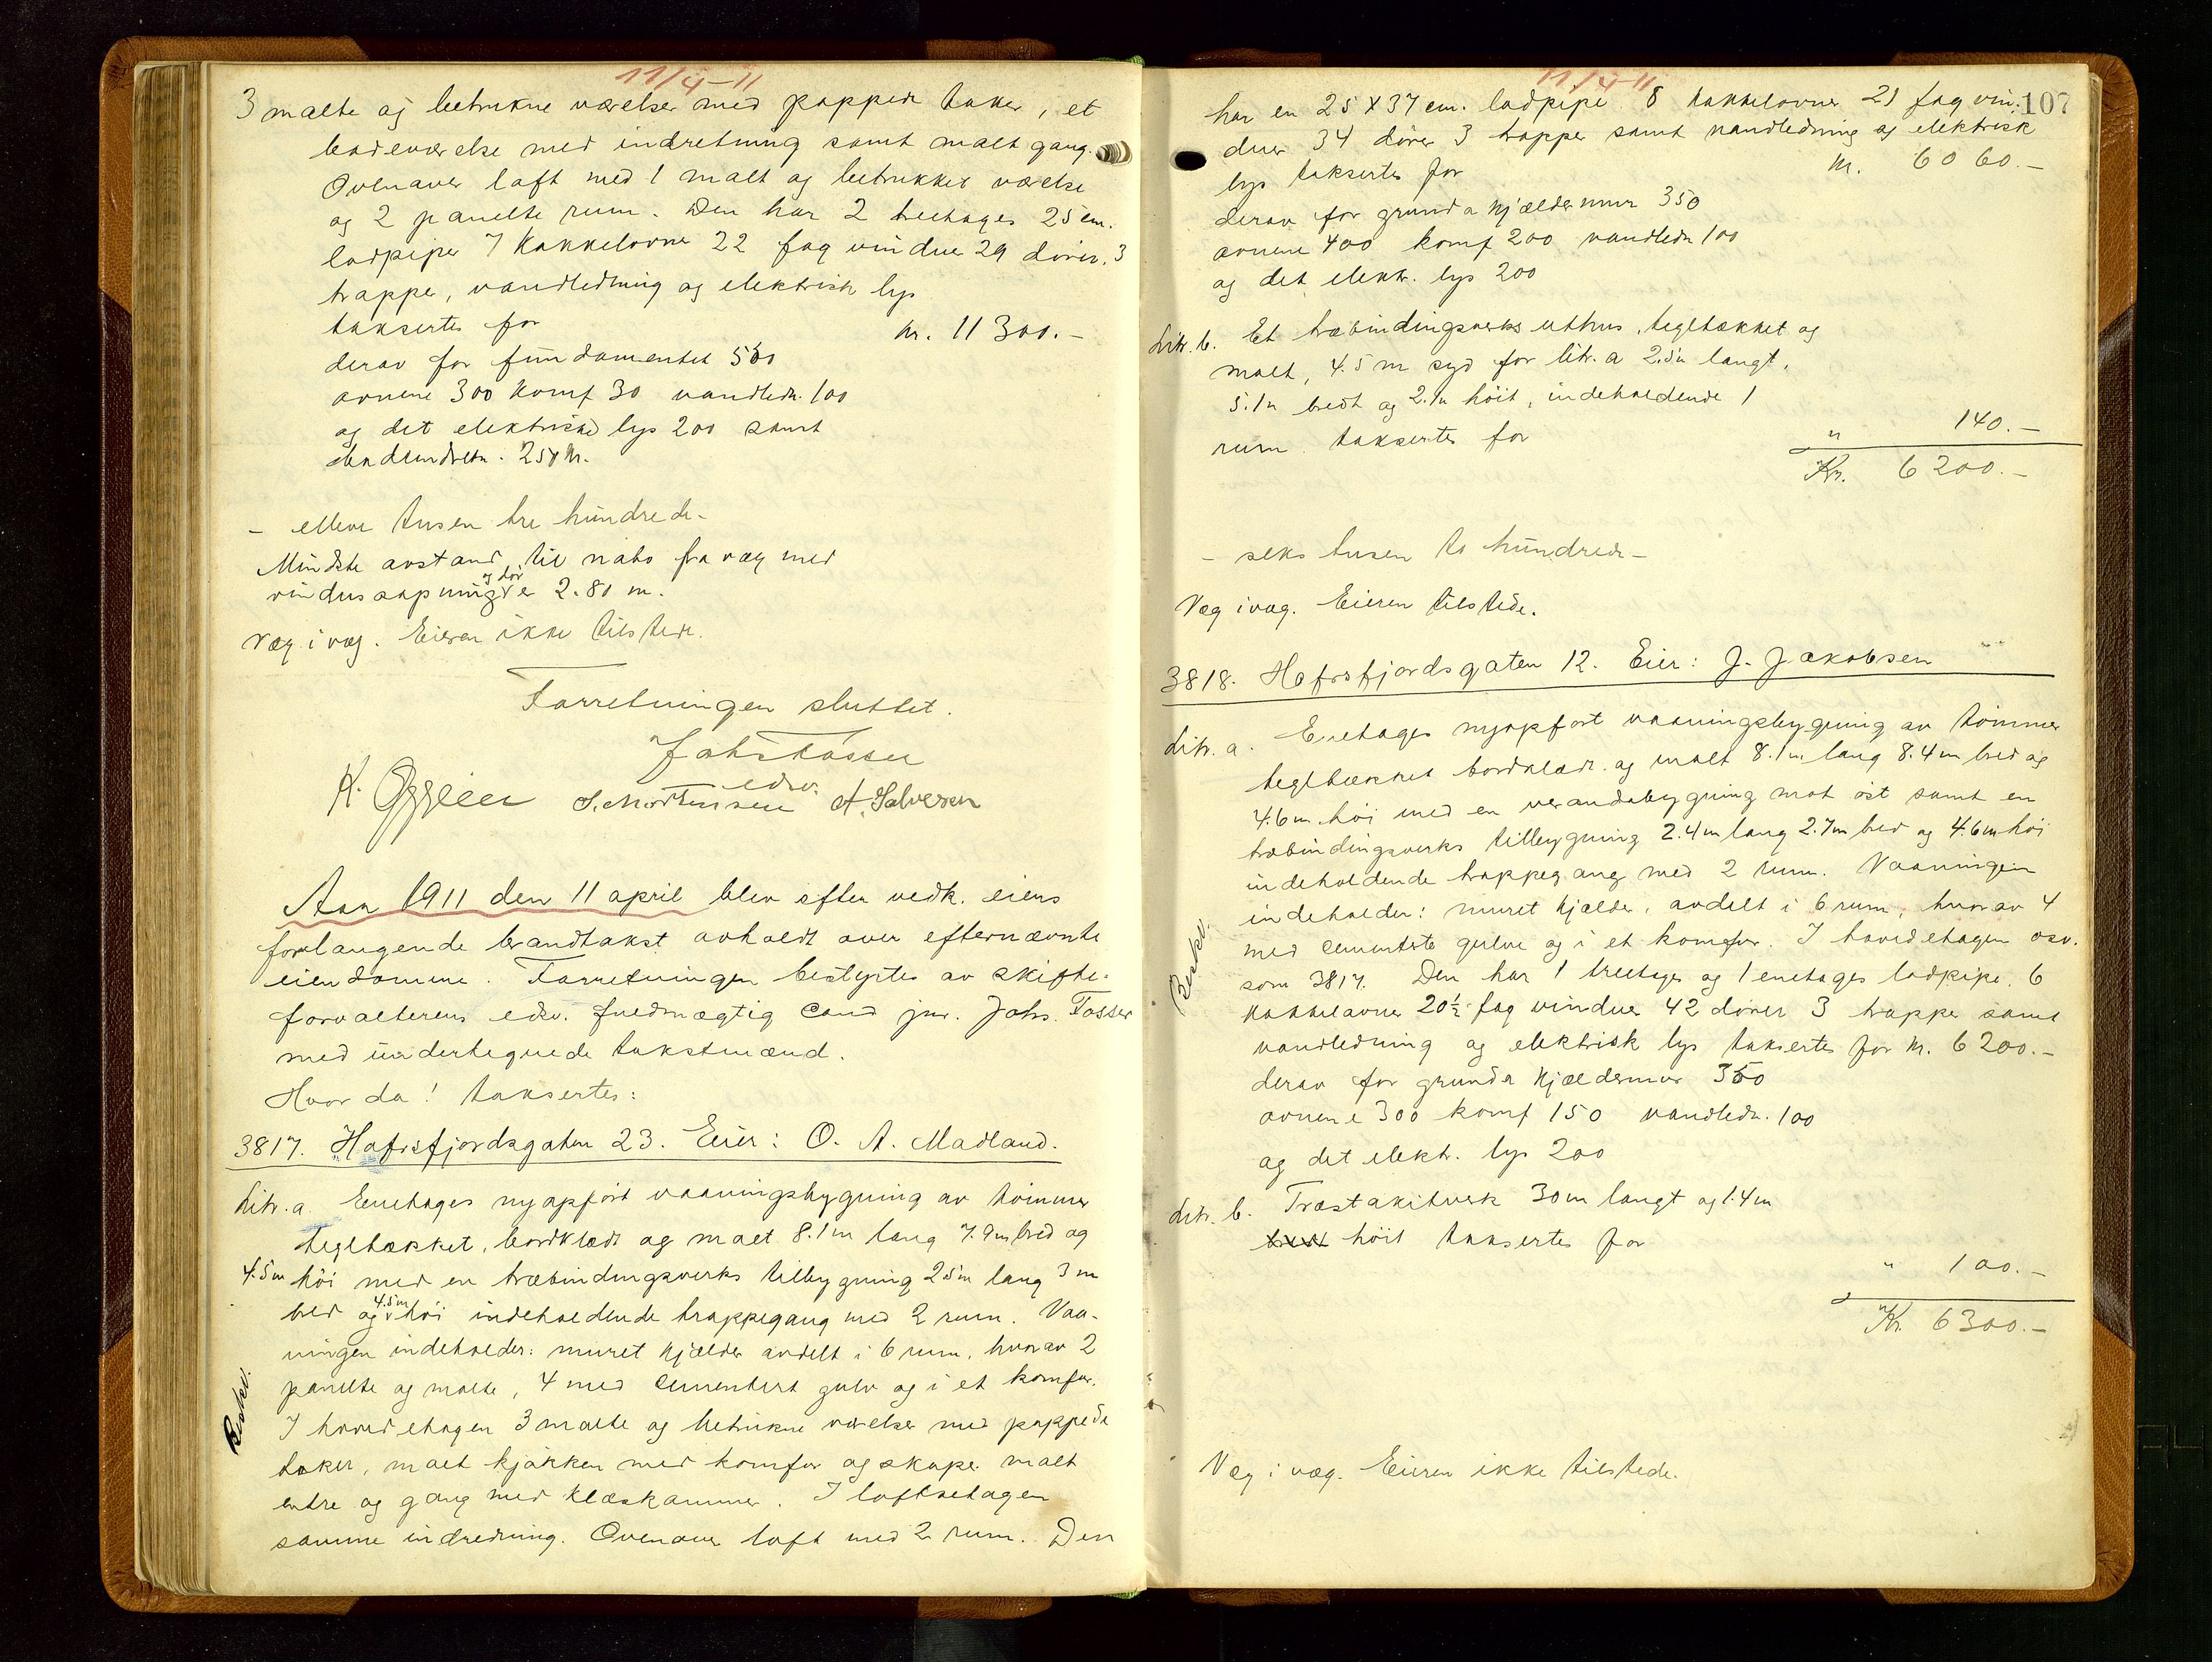 11/4-11
3 malte og betrukne værelser med pappede taker, et
badeværelse med indretning samt malt gang.
Ovenover loft med 1 malt og betrukket værelse
og 2 panelte rum. Den har 2 treetages 25 cm.
ladpiper 7 kakkelovne 22 fag vinduer 29 dører. 3
trapper, vandledning og elektrisk lys
taksertes for kr. 11300.-
derav for fundamentet 500
ovnene 300 komf 30 vandledn. 100
og det elektriske lys 200 samt
250 kr.
- elleve tusen tre hundrede-
Mindste avstand til nabo fra væg med
vindusaapning og dør er 2.80 m.
Væg i væg. Eieren ikke tilstede.
Forretningen sluttet.
Johs Tosser
edsv.
K. Oggeier S. Mortensen A. Salvesen
Aar 1911 den 11 april blev efter vedk. eiers
forlangende brandtakst avholdt over efternævnte
eiendomme. Forretningen bestyrtes av skifte-
forvalterens edsv. fuldmægtig cand jur. Johs. Tosser
med undertegnede takstmænd.
Hvor da! taksertes:
3817. Hafrsfjordsgaten 23. Eier: O. A. Madland.
Litr. a. Eenetages nyopført vaaningsbygning av tømmer
tegltækket, bordklædt og malt 8.1 m lang 7.9 m bred og
4.5 m høi med en træbindingsverks tilbygning 2.5 m lang 3 m
bred og 4.5 m høi indeholdende trappegang med 2 rum. Vaa-
ningen indeholder: muret kjælder avdelt i 6 rum, hvorav 2
panelte og malte, 4 med cementert gulv og i et komfur.
I hovedetagen 3 malte og betrukne værelser med pappede
taker, malt kjøkken med komfur og skape malt
entre og gang med klæskammer. I loftsetagen
samme indredning. Ovenover loft med 2 rum. Den
Beskr.
11/4-11
107
har en 25 X 37 cm. ladpipe 8 kakkelovne 21 fag vin-
duer 34 dører 3 trapper samt vandledning og elektrisk
lys taksertes for kr. 6060.-
derav for grund a kjældermur 350
ovnene 400 komf 200 vandledn 100
og det elektr. lys 200
Litr. b. Et træbindingsverks uthus, tegltækket og
malt, 4.5 m syd for litr. a 2.5 m langt,
5.1 m bredt og 2.1 m høit, indeholdende 1
rum. taksertes for " 140.-
Kr. 6200.-
- seks tusen to hundrede-
Væg i væg. Eieren tilstede.
3818. Hafrsfjordsgaten 12. Eier: J. Jakobsen
Litr. a. Enetages nyopført vaaningsbygning av tømmer
tegltækket bordklædt og malt 8.1 m lang 8.4 m bred og
4.6 m. høi med en verandabygning mot øst samt en
træbindingsverks tilbygning 2.4 m lang 2.7 m bred og 4.6 m høi
indeholdende trappegang med 2 rum. Vaaningen
indeholder: muret kjælder, avdelt i 6 rum, hvorav 4
med cementerte gulve og i et komfur. I hovedetagen osv.
som 3817. Den har 1 treetages og 1 enetages ladpipe. 6
kakkelovne 20½ fag vinduer 42 dører 3 trapper samt
vandledning og elektrisk lys taksertes for kr. 6200.-
derav for grund a kjældermur 350
ovnene 300 komf 150 vandledn. 100
og det elektr. lys 200
Beskr.
Litr. b. Træstakitverk 30 m langt og 1.4 m
høit taksertes for " 100.-
Kr. 6300.-
Væg i væg. Eieren ikke tilstede.